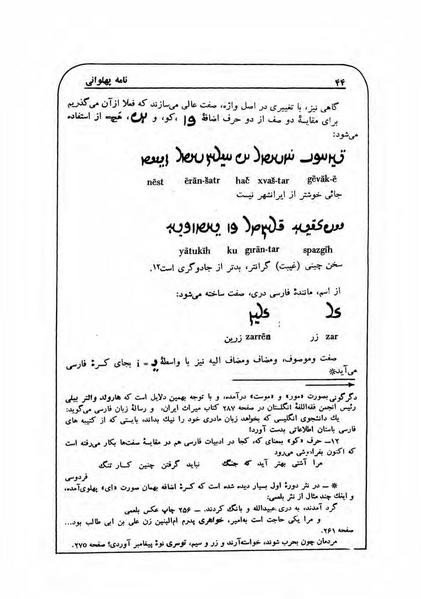 ۴۴
نامه پهلوانی
گاهی نیز، با تغییری در اصل واژه، صفت عالی می‌سازند که فعلا ازآن می‌گذریم
برای مقایسهٔ دو صف از دو حرف اضافهٔ ،کو، و ، هچ، از استفاده
می‌شود:
nēst ērān-šatr hač xvaš-tar gēvāk-ē
جائی خوشتر از ایرانشهر نیست
yātukīh ku gırān-tar spazgīh
سخن چینی (غیبت) گرانتر، بدتر از جادوگری است.۱۲
از اسم، مانندهٔ فارسی دری، صفت ساخته می‌شود:
زرین zarrēn زر zar
صفت وموصوف، ومضاف ومضاف الیه نیز با واسطهٔ i - بجای کسرهٔ فارسی
می‌آید*
دگرگونی بصورت «مور» و «موست» درآمده، و با توجه بهمین دلایل است که هارولد والتر بیلی
رئیس انجمن فقه‌اللغهٔ انگلستان در صفحه ۲۸۷ کتاب میراث ایران، و رسالهٔ زبان فارسی می‌گوید:
یك دانشجوی انگلیسی که بخواهد زبان مادری خود را نیك بداند، بایستی که از کتیبه های
فارسی باستان اطلاعاتی بدست آورد؟
۱۲— حرف «کو» بمعنای که، کجا در ادبیات فارسی هم در مقایسهٔ صفت‌ها بکار می‌رفته است
که اکنون بفراموشی می‌رود
مرا آشتی بهتر آید که جنگ نباید گرفتن چنین کار تنگ
فردوسی
* — در نثر دورهٔ اول بسیار دیده شده است که کسرهٔ اضافه بهمان صورت «ای» پهلوی‌آمده،
و اینك چند مثال از نثر بلعمی:
گرد آمدند، به دری عبیدالله و بانگ کردند. — ۲۵۶ چاپ عکس بلعمی
و مرا یکی حاجت است به‌امیر، خواهری پدرم ام‌البنین زن علی بن ابی طالب بود...
صفحه ۲۶۱.
مردمان چون بحرب شوند، خواسته‌آرند و زر و سیم، توسری نوهٔ پیغامبر آوردی؛ صفحه ۲۷۵.